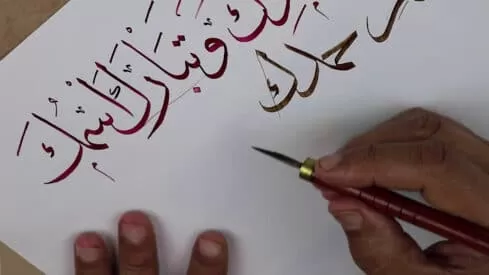 وَتَبَارَكَ اسْمُكَ
حمدك